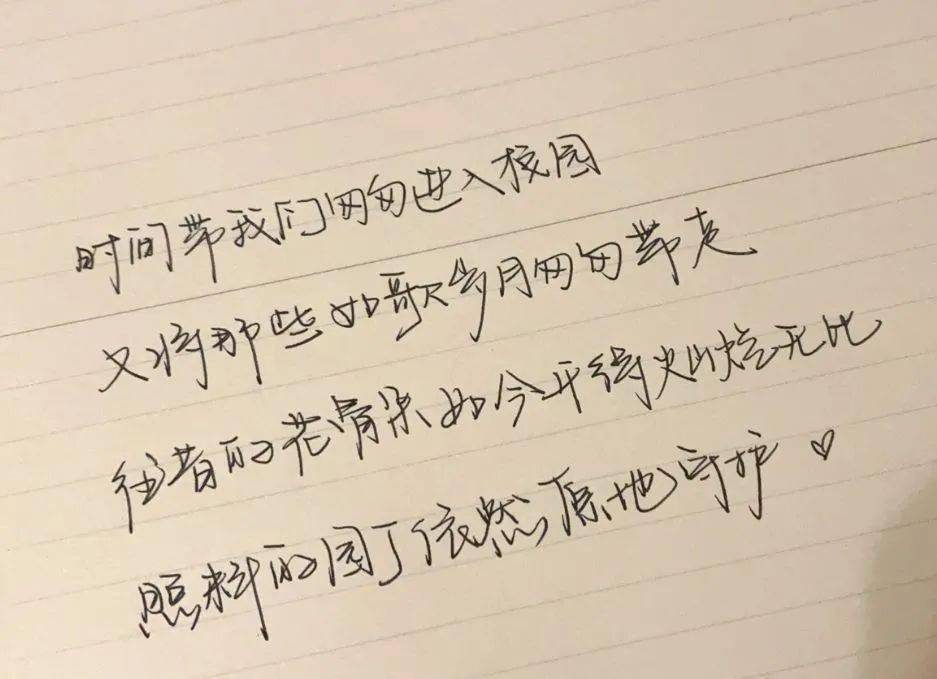 时间带我们匆匆进入校园
又将那些如歌岁月匆匆带走
往昔的花骨朵如今开得灿烂无比
照料的园丁依然原地守护♡